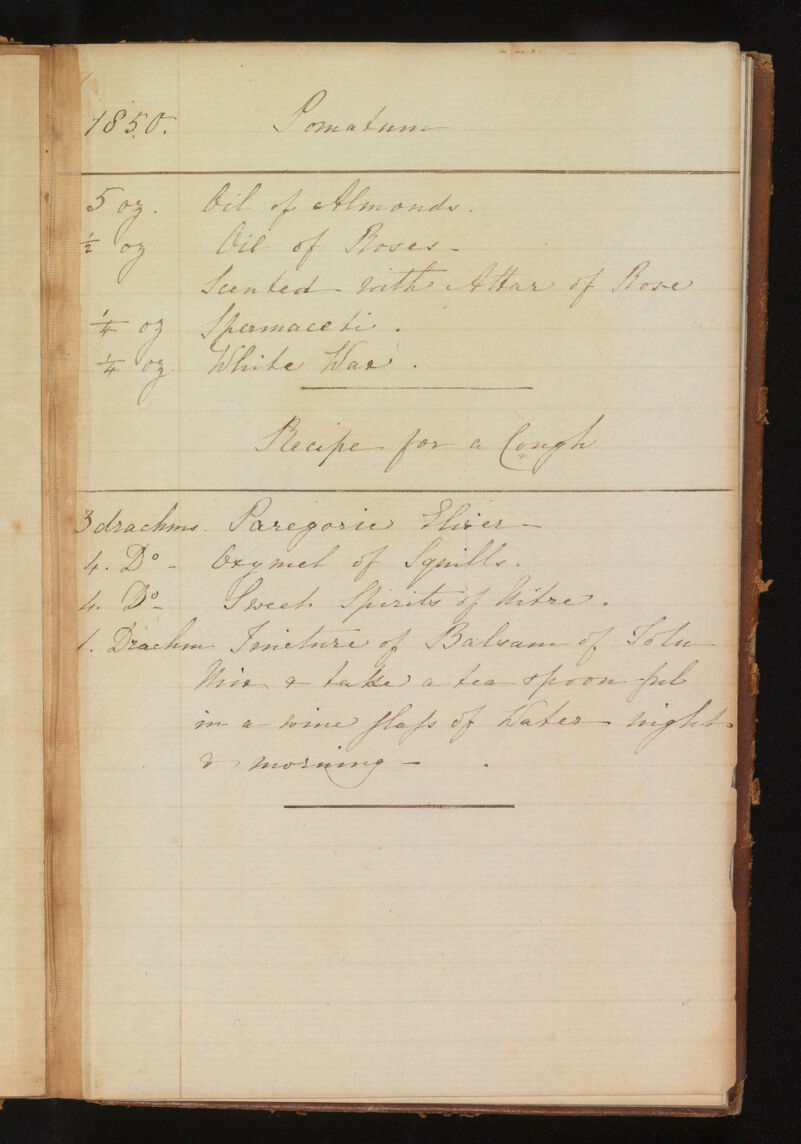 1850. Pomatum
5 oz. Oil of Almonds.
½ oz Oil of Roses -
Scented with Attar of Rose
¼ oz Spermaceti.
¼ oz White Wax.
Recipe for a Cough
3 drachms. Paregoric Elixer -
4. Do - Oxymel of Squills.
4. Do - Sweet Spirits of Nitre.
1. Drachm Tincture of Balsam of Tolu
Mix & take a tea spoon ful
in a wine glass of Water night
& morning - .